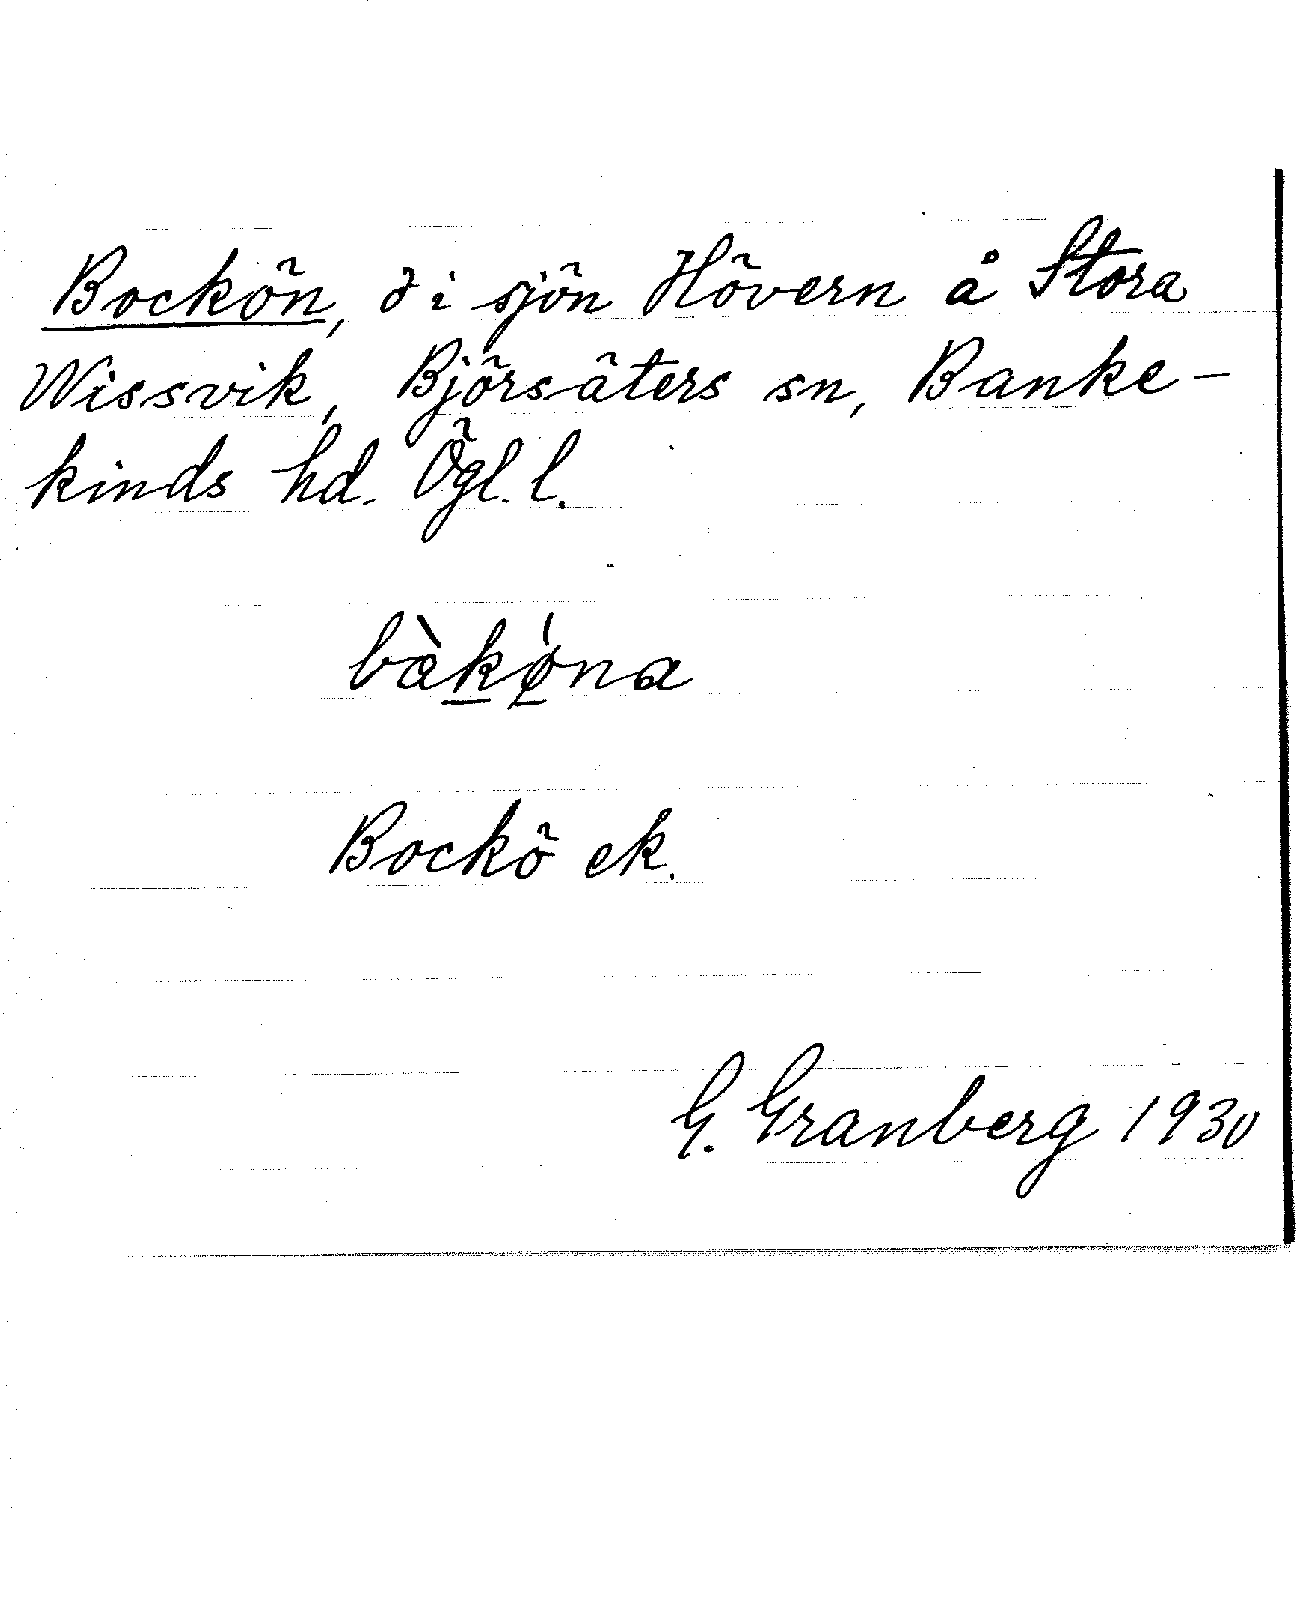 Bockön, ö i sjön Hövern å Stora
Wissvik, Björsäters sn, Banke-
kinds hd. Ögl. l.
bàkǿna
Bockö ek.
G. Granberg 1930